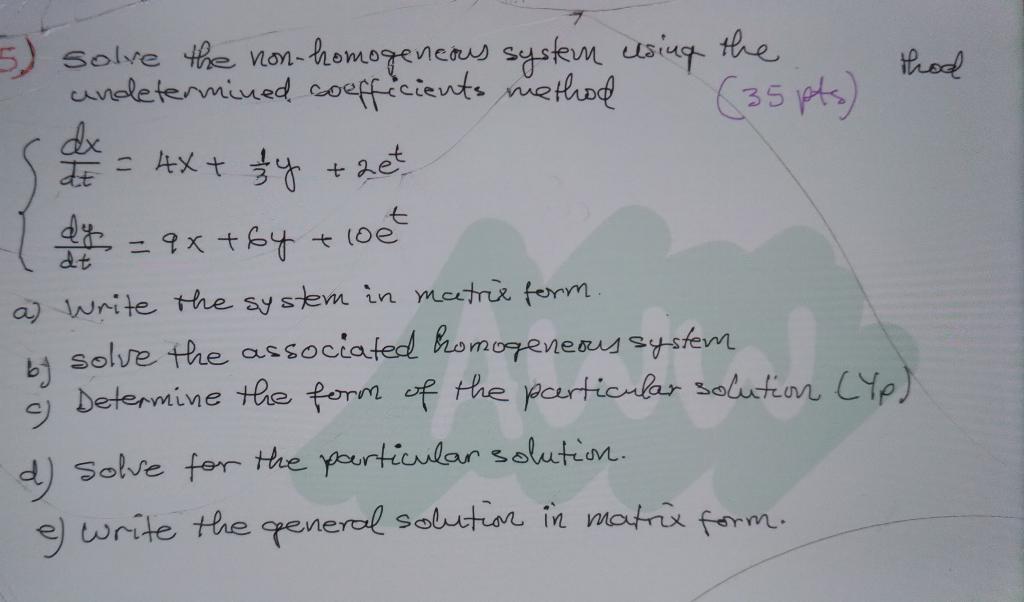 5) Solve the non-homogeneous system using the thod
undetermined coefficients method (35 pts)
dx/dt = 4x + 1/3 y + 2e^t
dy/dt = 9x + 6y + 10e^t
a) Write the system in matrix form.
b) solve the associated homogeneous system
c) Determine the form of the particular solution (Yp)
d) Solve for the particular solution.
e) Write the general solution in matrix form.